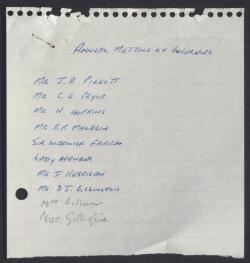 ANNUAL MEETING OF GOVERNORS
MR J.B. PIGGOTT
MR C.G. PRYOR
MR N. HOPKINS
MR B.R. MACKLIN
SIR WARWICK FAIRFAX
LADY
MR J. KERRIGAN
MR. B J. GILLINGTON
Mrs
Miss Gillespie